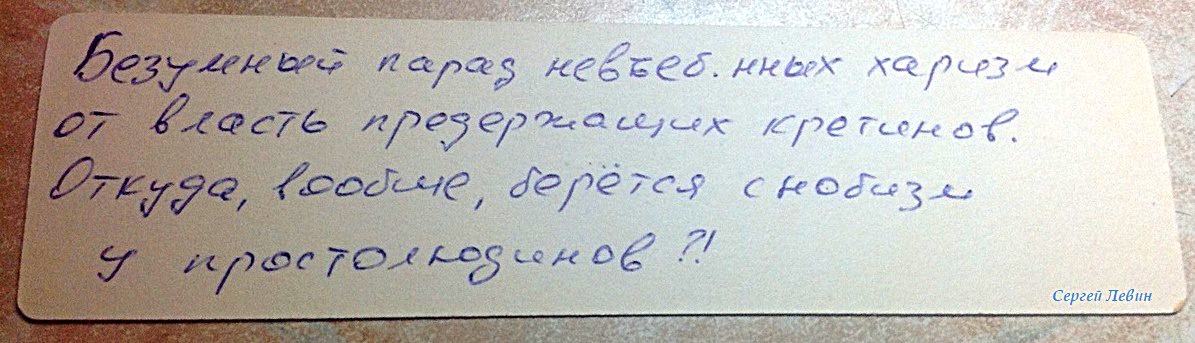 Безумный парад невъеб.нных харизм
от власть предержащих кретинов.
Откуда, вообще, берётся снобизм
у простолюдинов?!
Сергей Левин